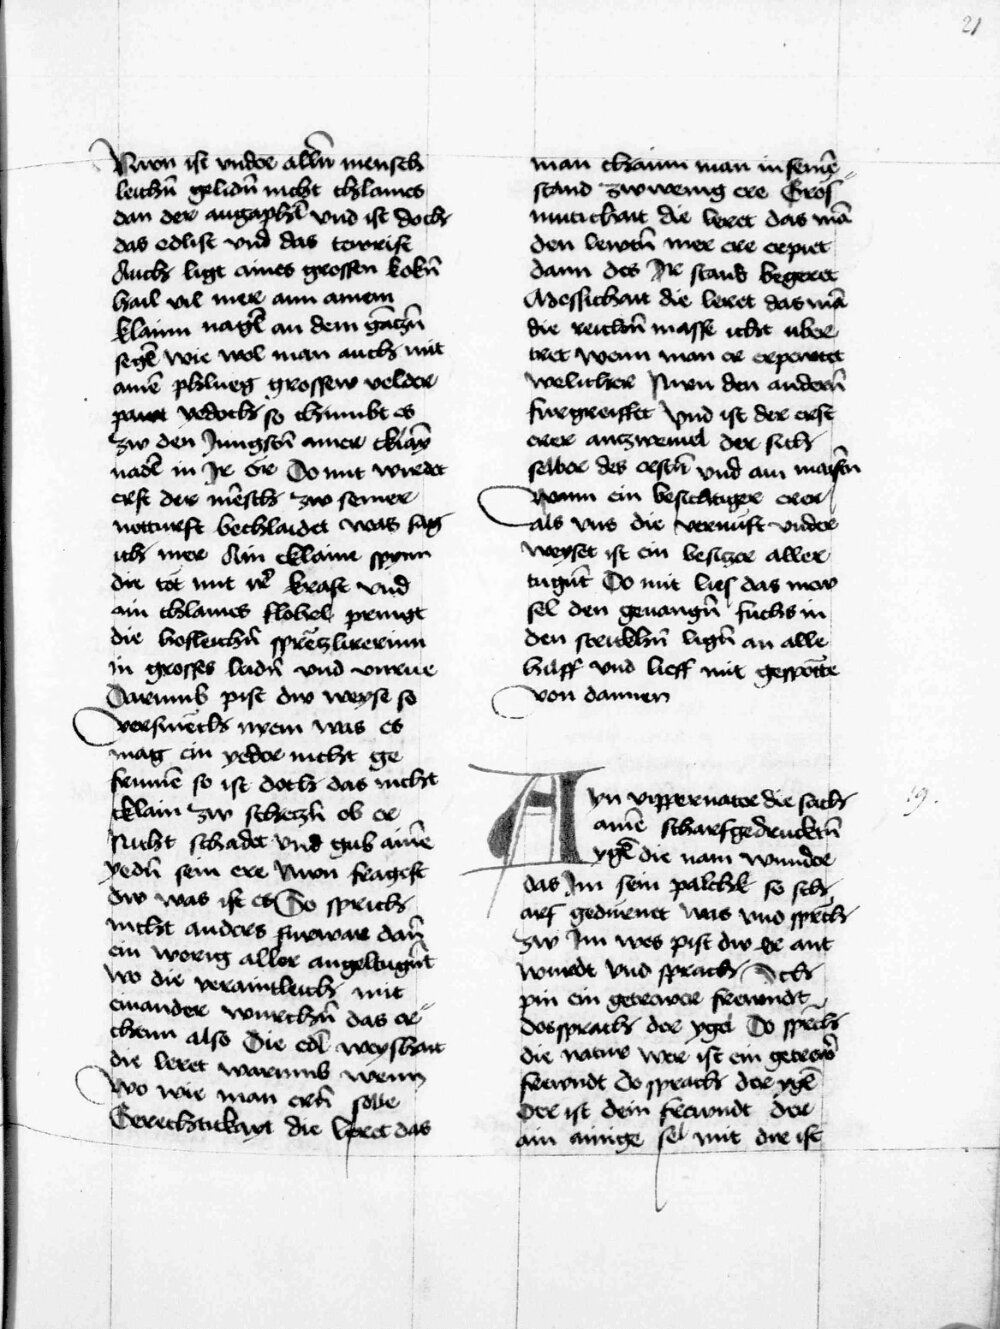 21
Nwn ist vnder allñ mensch
leichñ gelidñ nicht chlaines
dan der augaphel vnd ist doch
das edlist vnd das tewrist
Auch ligt aines grossen kokñ
hail vil mer ann ainem
klainn nagel an dem gãczñ
segel wie wol man auch mit
ainẽ phlueg grossew velder
pawt yedoch so chumbt es
zw den Jungstñ ainer cklain
nadel in Jr Er Do mit wirdet
erst der mẽsch zw seiner
notturft bechlaidet was sag
ich mer Ain cklaine spynn
die tót mit irer kraft vnd
ain chlaines flohel pringt
die hofleichñ
in grosses laidñ vnd vnrue
Darumb pist dw weyse so
versmẽch nyem was es
mag ein yeder nicht ge
frumẽ so ist doch das nicht
cklain zw scheczñ ob er
Nicht schadet vnd gub ainẽ
yedñ sein ere Nwn fragest
dw was ist es So sprich
nicht anders furwar dañ
ein worig aller angeltugñt
wo die veraintleich mit
einander wurchñ das er
chenn also Die edl weyshait
die leret warumb wenn
wo wie man erñ solle
Gerechtickayt die leret das
man chainn man in seinẽ
stand zw wenig ere Gros
mutichait die leret das mã
den lewtñ mer ere erpiet
dann des Jr stand begeret
Messichait die leret das mã
die reichñ masse icht uber
tret wenn man er erpewtet
welicher Nwn den anderñ
furgreiffet Vnd ist der erst
erer anczweiuel der sich
selber des erstñ vnd am maisten
wann ein besichtiger erer
als vns die vernuft vnder
weyset ist ein besiczer aller
tugñt Do mit lies das mew
sel den geuangñ fuchs in
den strickhñ ligñ an alle
hilff vnd lieff mit gespotte
von dannen
19.
Ayn vippernater die sach
ainẽ scharfgedrucktñ
ygel die nam wunder
das Jm sein palckh so sch
arf gedürnet was vnd sprach
zw Jm wes pist dw er ant
wurdt vnd sprach Ich
pin ein getrewer frewndt
dessprach der ygel Do sprach
die natur wer ist ein getrewr
frewndt do sprach der ygel
Der ist dein frewndt der
ain ainige sel mit dir ist